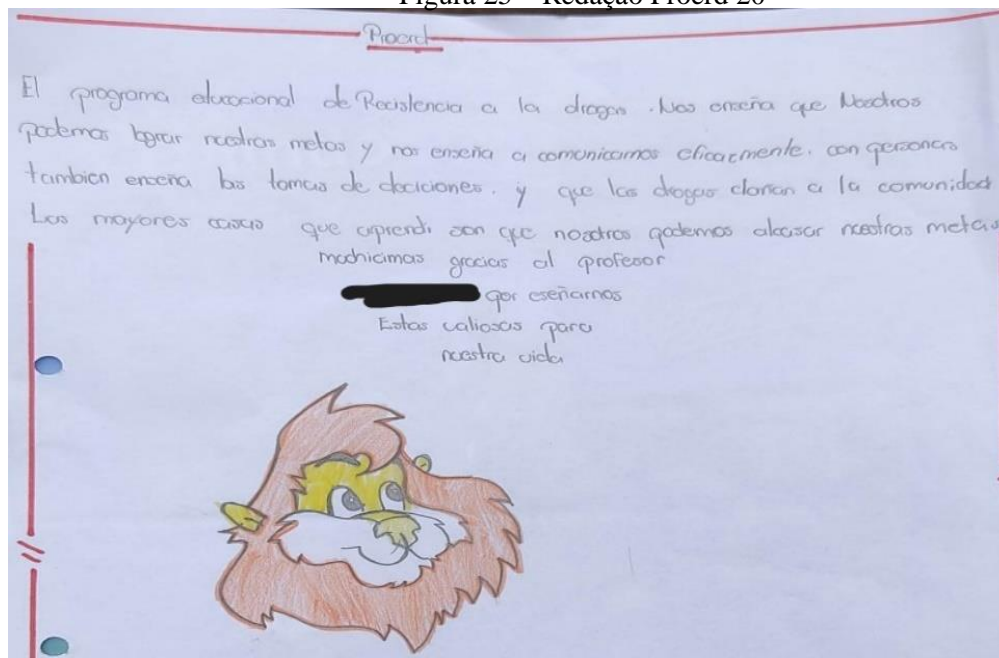 Figura 25 – Redação Proerd 20
Proerd
El programa educacional de Recistencia a la drogas. Nos enceña que Nosotros
podemos lograr nuestras metas y nos enseña a comunicarnos eficacmente. con personas
tambien enceña las tomas de deciciones. y que las drogas dañan a la comunidad
Las mayores cosas que aprendi son que nosotros podemos alcasar nuestras metas
muchicimas gracias al profesor
por eseñarnos
Estas valiosas para
nuestra vida